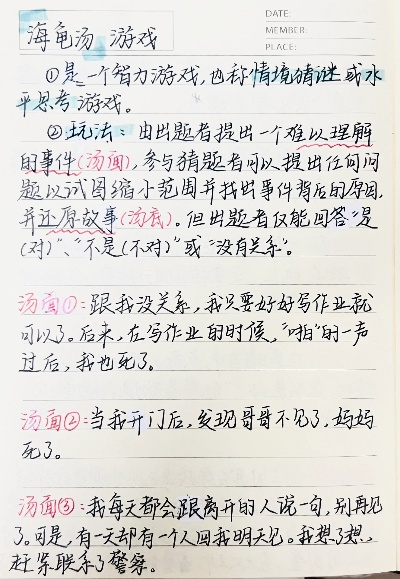 海龟汤 游戏
DATE:
MEMBER:
PLACE:
①是一个智力游戏,也称情境猜谜或水
平思考游戏。
②玩法:由出题者提出一个难以理解
的事件(汤面),参与猜题者可以提出任何问
题以试图缩小范围并找出事件背后的原因,
并还原故事(汤底)。但出题者仅能回答“是
(对)”、“不是(不对)”或“没有关系”。
汤面①:跟我没关系,我只要好好写作业就
可以了。后来,在写作业的时候,“啪”的一声
过后,我也死了。
汤面②:当我开门后,发现哥哥不见了,妈妈
死了。
汤面③:我每天都会跟离开的人说一句,别再见
了。可是,有一天却有一个人回我明天见。我想了想,
赶紧联系了警察。